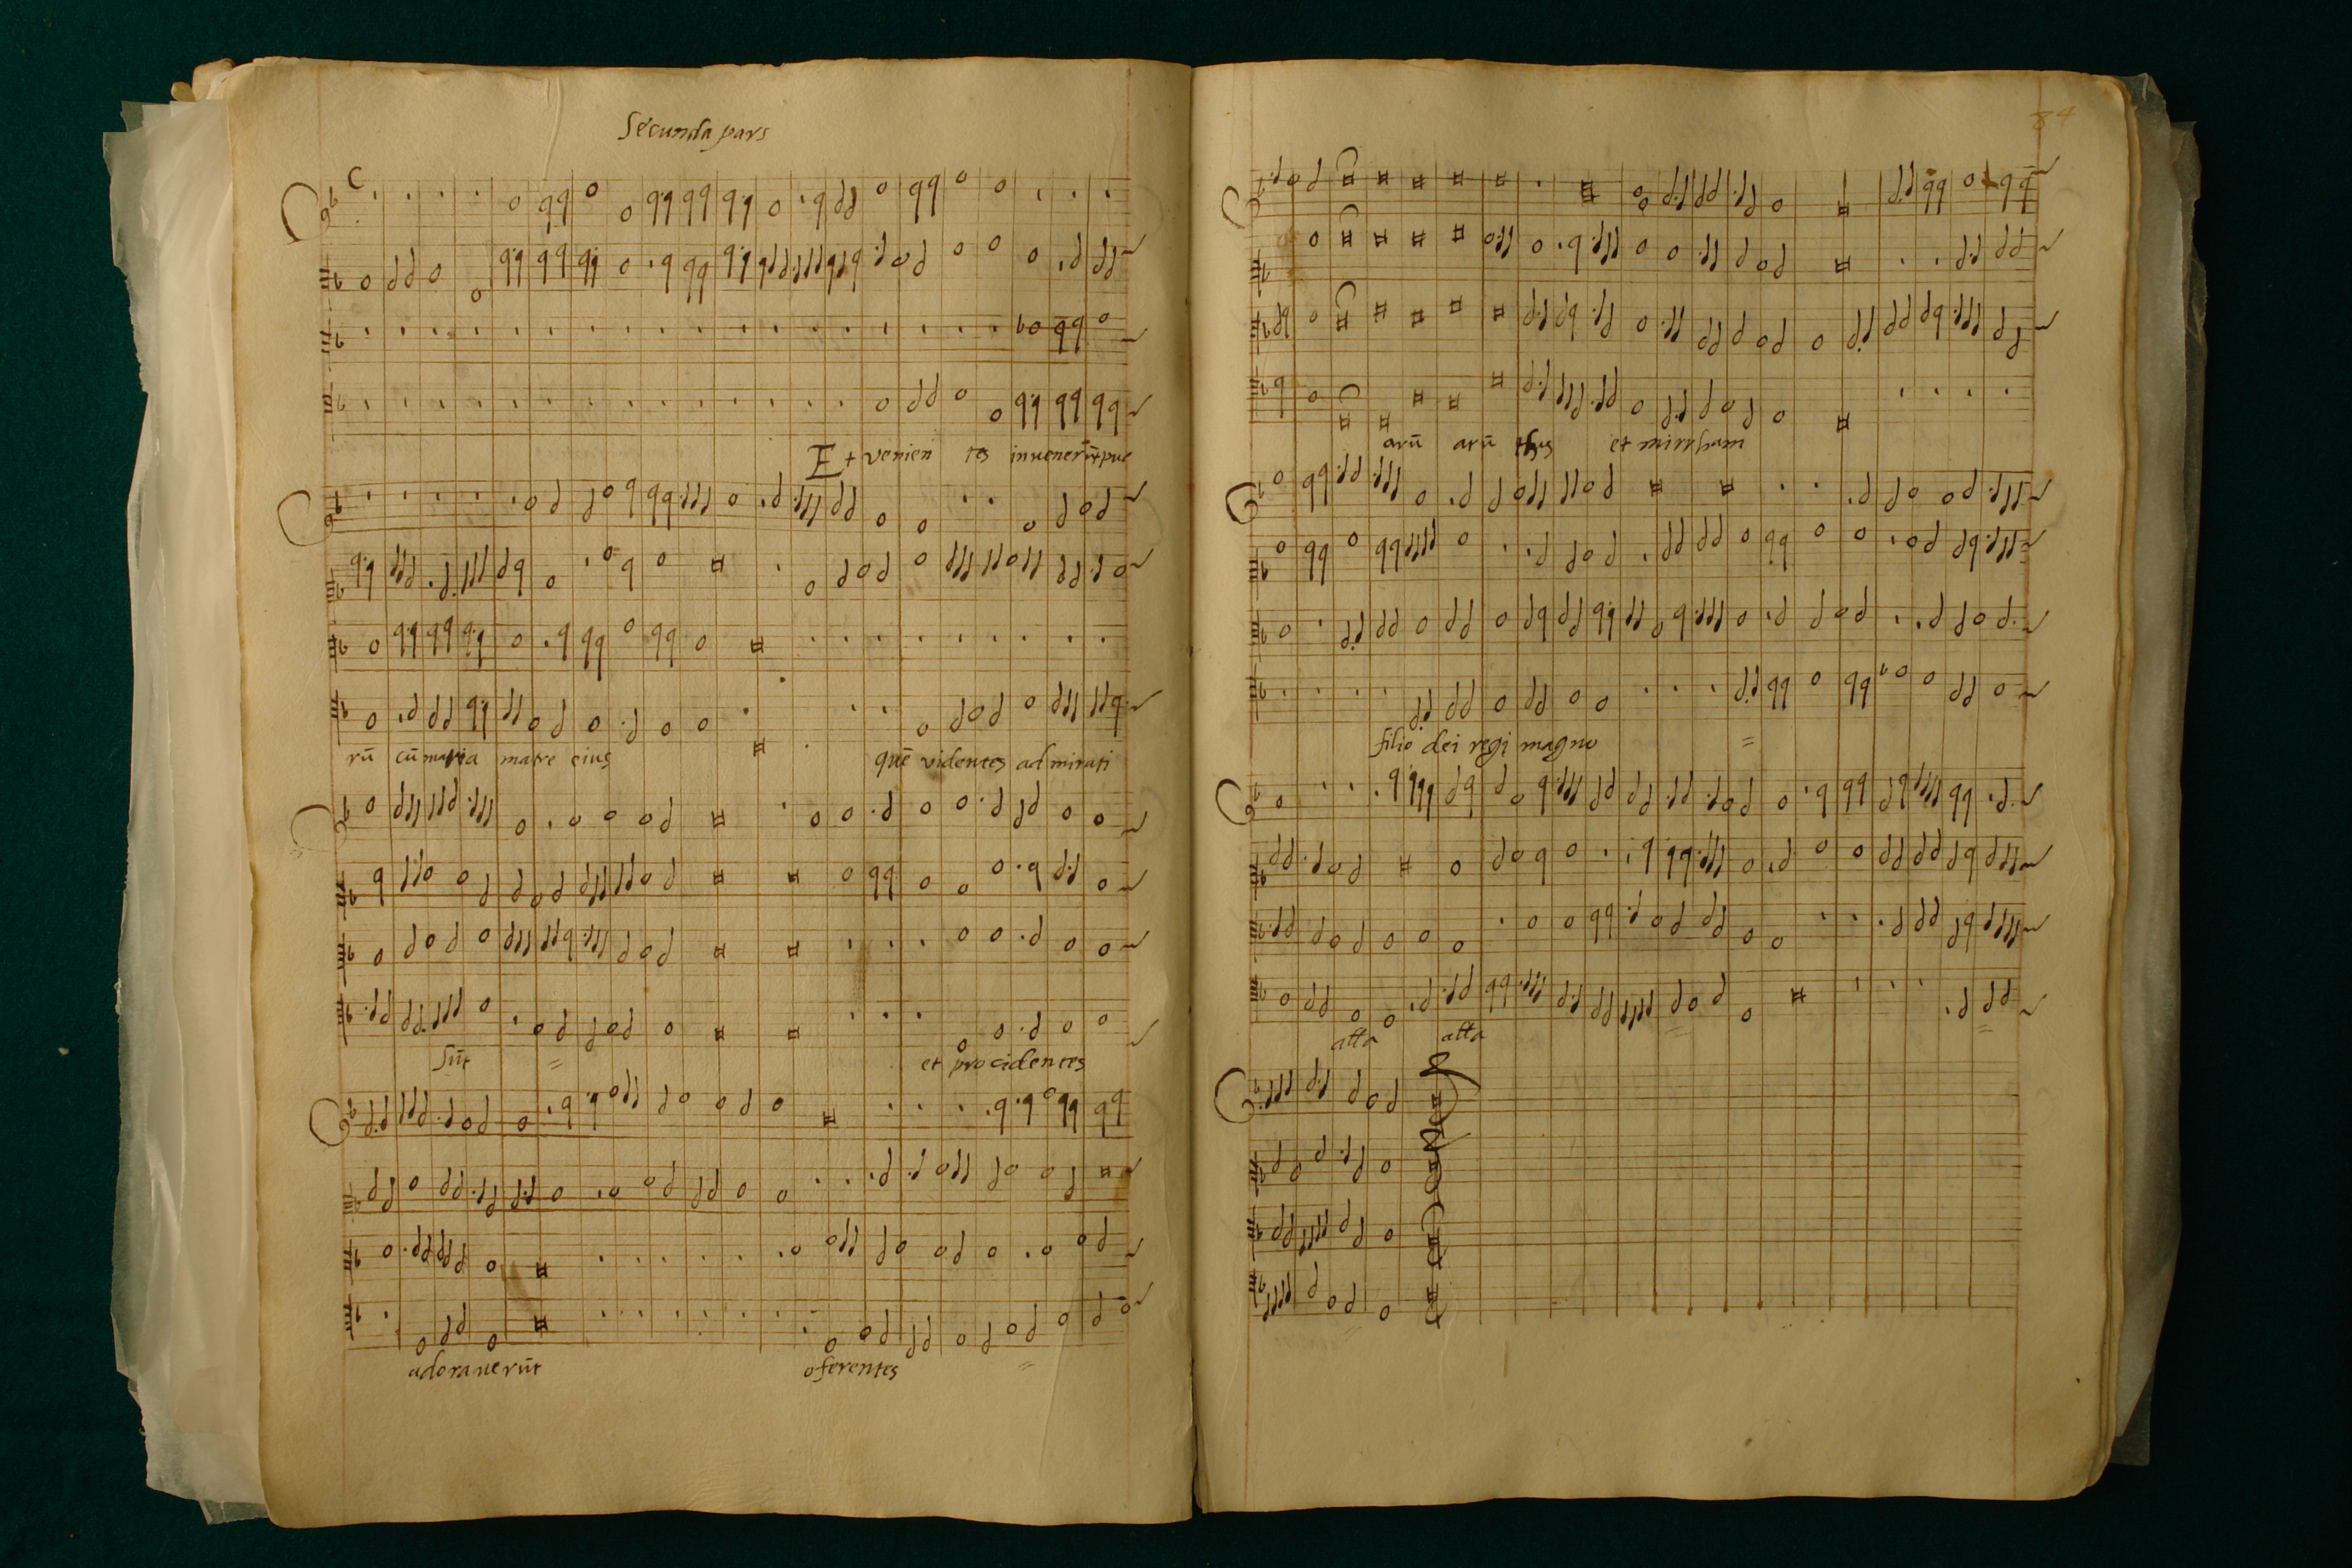 Secunda pars
C
Et venien tes inuenerūt pue
rū cū maria matre eius quē videntes ad mirati
sūt et procidentes
adoraverūt oferentes
84
arū arū thus et mirrham
filio dei regi magno
alla alla